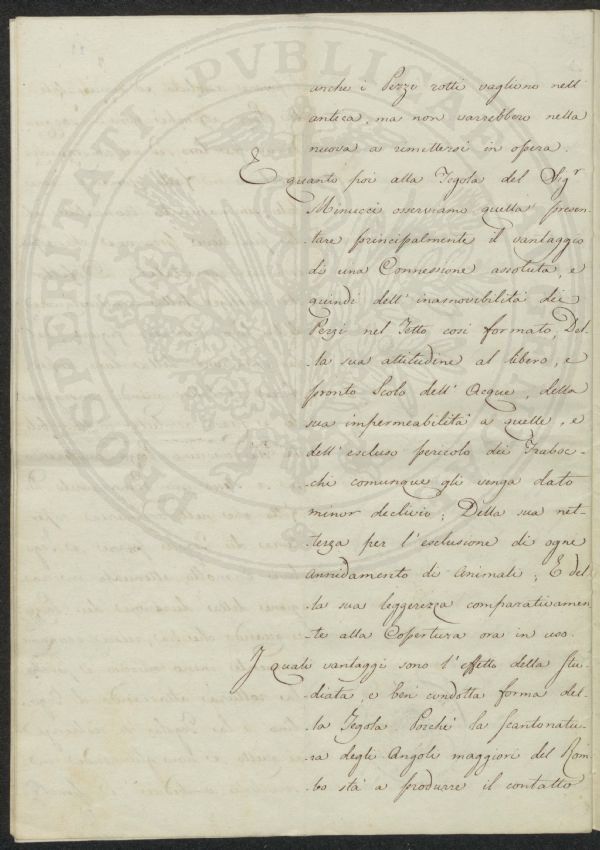 anche i Pezzi rotti vagliono nell'
antica, ma non varrebbero nella
nuova a rimettersi in opera.
E quanto poi alla Tegola del Sigr
Minucci osserviamo quella presen-
-tare principalmente il vantaggio
di una Connessione assoluta, e
quindi dell' inamovibilità dei
Pezzi nel Tetto così formato, Del-
-la sua attitudine al libero, e
pronto Scolo dell' Acque, della
sua impermeabilità a quelle, e
dell' escluso pericolo dei Traboc-
-chi comunque gli venga dato
minor declivio; Della sua net-
-tezza per l'esclusione di ogne
annidamento di Animali; E del-
-la sua leggerezza comparativamen-
-te alla Copertura ora in uso.
I quali vantaggi sono l'effetto della stu-
-diata, e ben condotta forma del-
-la Tegola. Perchè la scantonatu-
-ra degli Angoli maggiori del Rom-
-bo stà a produrre il contatto
PROSPERITATI PVBLICAE